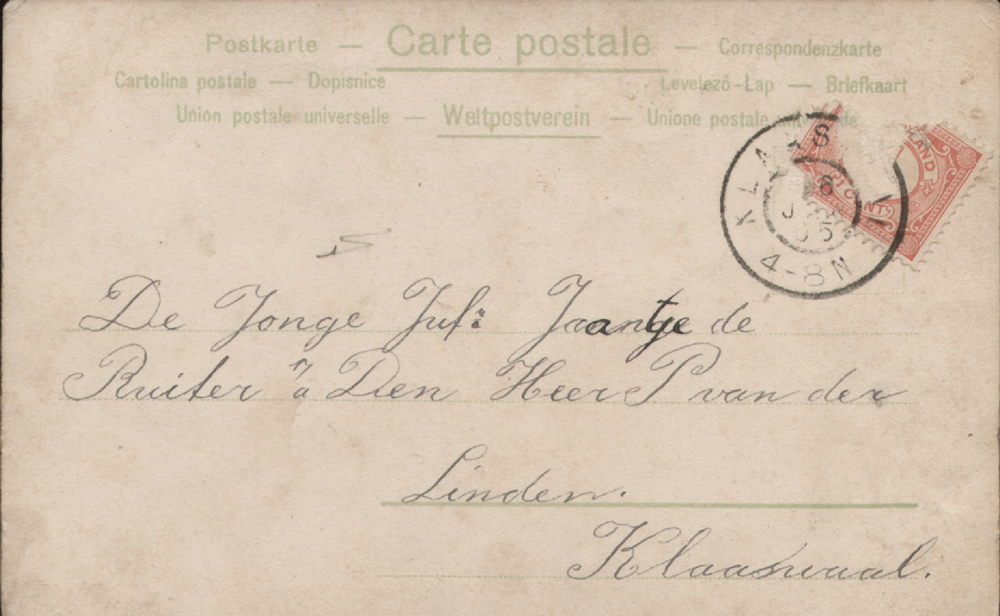 Postkarte — Carte postale — Correspondenzkarte
Cartolina postale — Dopisnice Levelező-Lap — Briefkaart
Union postale universelle — Weltpostverein — Unione postale
KLAAS
S
8
4-8N
CENT
LAND
De Jonge Juf: Jaantje de
Ruiter "a Den Heer P van der
Linden.
Klaaswaal.